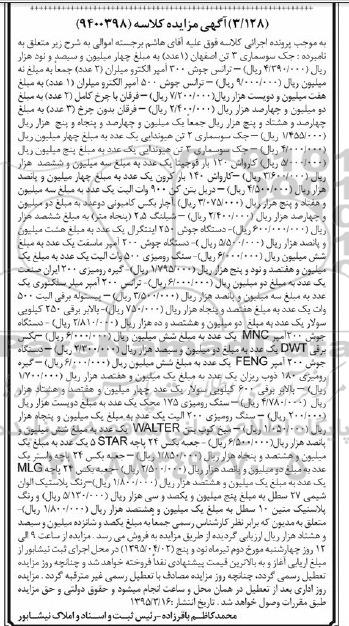 (۳/۱۲۸) آگهی مزایده کلاسه (۹۴۰۰۳۹۸)
به موجب پرونده اجرائی کلاسه فوق علیه آقای هاشم برجسته اموالی به شرح زیر متعلق به
نامبرده : جک سوسماری ۳ تن اصفهان (۱عدد) به مبلغ چهار میلیون و سیصد و نود هزار
ریال (۴/۳۹۰/۰۰۰ ریال) – ترانس جوش ۳۰۰ آمپر الکترو میلران (۲ عدد) جمعا به مبلغ نه
میلیون ریال (۹/۰۰۰/۰۰۰ ریال) – ترانس جوش ۵۰۰ آمپر الکترو میلران (۱ عدد) به مبلغ
هفت میلیون و دویست هزار ریال (۷/۲۰۰/۰۰۰ ریال) – فرقان با چرخ کامل (۲ عدد) به مبلغ
دو میلیون و چهارصد هزار ریال (۲/۴۰۰/۰۰۰ ریال) – فرقان بدون چرخ (۳ عدد) به مبلغ
چهارصد و هشتاد و پنج هزار ریال جمعا یک میلیون و چهارصد و پنجاه و پنج هزار ریال
(۱/۴۵۵/۰۰۰ ریال) – جک سوسماری ۲ تن هیوندایی یک عدد به مبلغ چهار میلیون ریال
(۴/۰۰۰/۰۰۰ ریال) – جک سوسماری ۳ تن هیوندایی یک عدد به مبلغ پنج میلیون ریال
(۵/۰۰۰/۰۰۰ ریال) کارواش ۱۲۰ بار یک عدد به مبلغ سه میلیون و ششصد هزار
ریال (۳/۶۰۰/۰۰۰ ریال) – کارواش ۱۴۰ بار کرون یک عدد به مبلغ چهار میلیون و پانصد
هزار ریال (۴/۵۰۰/۰۰۰ ریال) – دریل بتن کن ۹۰۰ وات الیت یک عدد به مبلغ سه میلیون
و هفتاد و پنج هزار ریال (۳/۰۷۵/۰۰۰ ریال) آچار بکس کامیونی دوعدد به مبلغ دو میلیون
و چهارصد هزار ریال (۲/۴۰۰/۰۰۰ ریال) – شیلنگ ۲.۵ (پنجاه متر) به مبلغ ششصد هزار
ریال (۶۰۰/۰۰۰ ریال) – دستگاه جوش ۲۵۰ اینتگرال یک عدد به مبلغ هشت میلیون
و پانصد هزار ریال – دستگاه جوش ۲۰۰ آمپر ماسفت یک عدد به مبلغ
شش میلیون ریال (۶/۰۰۰/۰۰۰ ریال) – سنگ رومیزی ۵۰۰ وات الیت یک عدد به مبلغ یک
میلیون و هفتصد و نود و پنج هزار ریال (۱/۷۹۵/۰۰۰ ریال) – گیره رومیزی ۲۰۰ ایران صنعت
یک عدد به مبلغ دو میلیون ریال – ترانس ۲۰۰ آمپر میلر سنکتوری یک
عدد به مبلغ سه میلیون و پانصد هزار ریال (۳/۵۰۰/۰۰۰ ریال) – پیستوله برقی الیت ۵۰۰
وات یک عدد به مبلغ هفتصد و پنجاه هزار ریال (۷۵۰/۰۰۰ ریال) – بالابر برقی ۲۵۰ کیلویی
سولار یک عدد به مبلغ دو میلیون و هشتصد و ده هزار ریال (۲/۸۱۰/۰۰۰ ریال) – دستگاه
جوش ۲۰۰ آمپر MNC یک عدد به مبلغ شش میلیون ریال (۶/۰۰۰/۰۰۰ ریال) – بکس
برقی DWT یک عدد به مبلغ دو میلیون و سیصد هزار ریال – دستگاه
جوش ۲۰۰ آمپر FENG یک عدد به مبلغ شش میلیون ریال (۶/۰۰۰/۰۰۰ ریال) – گیره
رومیزی ۱۸۰ ذوب ریزان یک عدد به مبلغ یک میلیون و هفتصد هزار ریال (۱/۷۰۰/۰۰۰
ریال) – بالابر برقی ۵۰۰ کیلویی سولار یک عدد چهار میلیون و هفتصد و هشتاد هزار
ریال (۴/۷۸۰/۰۰۰ ریال) – سنگ رومیزی ۱۷۵ محک یک عدد به مبلغ دویست هزار ریال
(۲۰۰/۰۰۰ ریال) – سنگ رومیزی ۲۰۰ الیت یک عدد به مبلغ یک میلیون و پنجاه هزار
ریال (۱/۰۵۰/۰۰۰ ریال) – میخ کوب بتن WALTER یک عدد به مبلغ شش میلیون و
پانصد هزار ریال (۶/۵۰۰/۰۰۰ ریال) – جعبه بکس ۲۴ پاچه 5 STAR یک عدد به مبلغ یک
میلیون و هشتصد و پنجاه هزار ریال (۱/۸۵۰/۰۰۰ ریال) – جعبه بکس ۲۴ پاچه یک
عدد به مبلغ دو میلیون و پانصد هزار ریال (۲/۵۰۰/۰۰۰ ریال) – جعبه بکس ۲۴ پاچه MLG
یک عدد به مبلغ یک میلیون و هشتصد هزار ریال (۱/۸۰۰/۰۰۰ ریال) – رنگ پلاستیک الوان
شیمی ۲۷ سطل به مبلغ پنج میلیون و یکصد و سی هزار ریال (۵/۱۳۰/۰۰۰ ریال) و رنگ
پلاستیک متین ۱۰ سطل به مبلغ یک میلیون و هشتصد هزار ریال (۱/۸۰۰/۰۰۰ ریال) –
متعلق به مدیون که برابر نظر کارشناس رسمی جمعا به مبلغ یکصد و شانزده میلیون و سیصد
و هشتاد هزار ریال ارزیابی گردیده از طریق مزایده به فروش می رسد . مزایده از ساعت ۹ الی
۱۲ روز چهارشنبه مورخ دوم تیرماه نود و پنج (۱۳۹۵/۰۴/۰۲) در محل اجرای ثبت نیشابور از
مبلغ ارزیابی آغاز و به بالاترین قیمت پیشنهادی نقداً فروخته خواهد شد و چنانچه روز مزایده
تعطیل رسمی گردد، چنانچه روز مزایده مصادف با تعطیل رسمی غیر مترقبه گردد . مزایده
روز اداری بعد از تعطیل در همان محل و ساعت انجام میشود و حقوق دولتی و حق مزایده
طبق مقررات وصول خواهد شد . تاریخ انتشار : ۱۳۹۵/۳/۱۶
محمدکاظم باقرزاده – رئیس ثبت و اسناد و املاک نیشابور